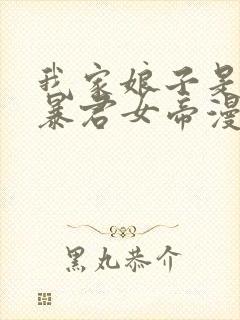 我家娘子是
暴君女帝漫
黑丸恭介